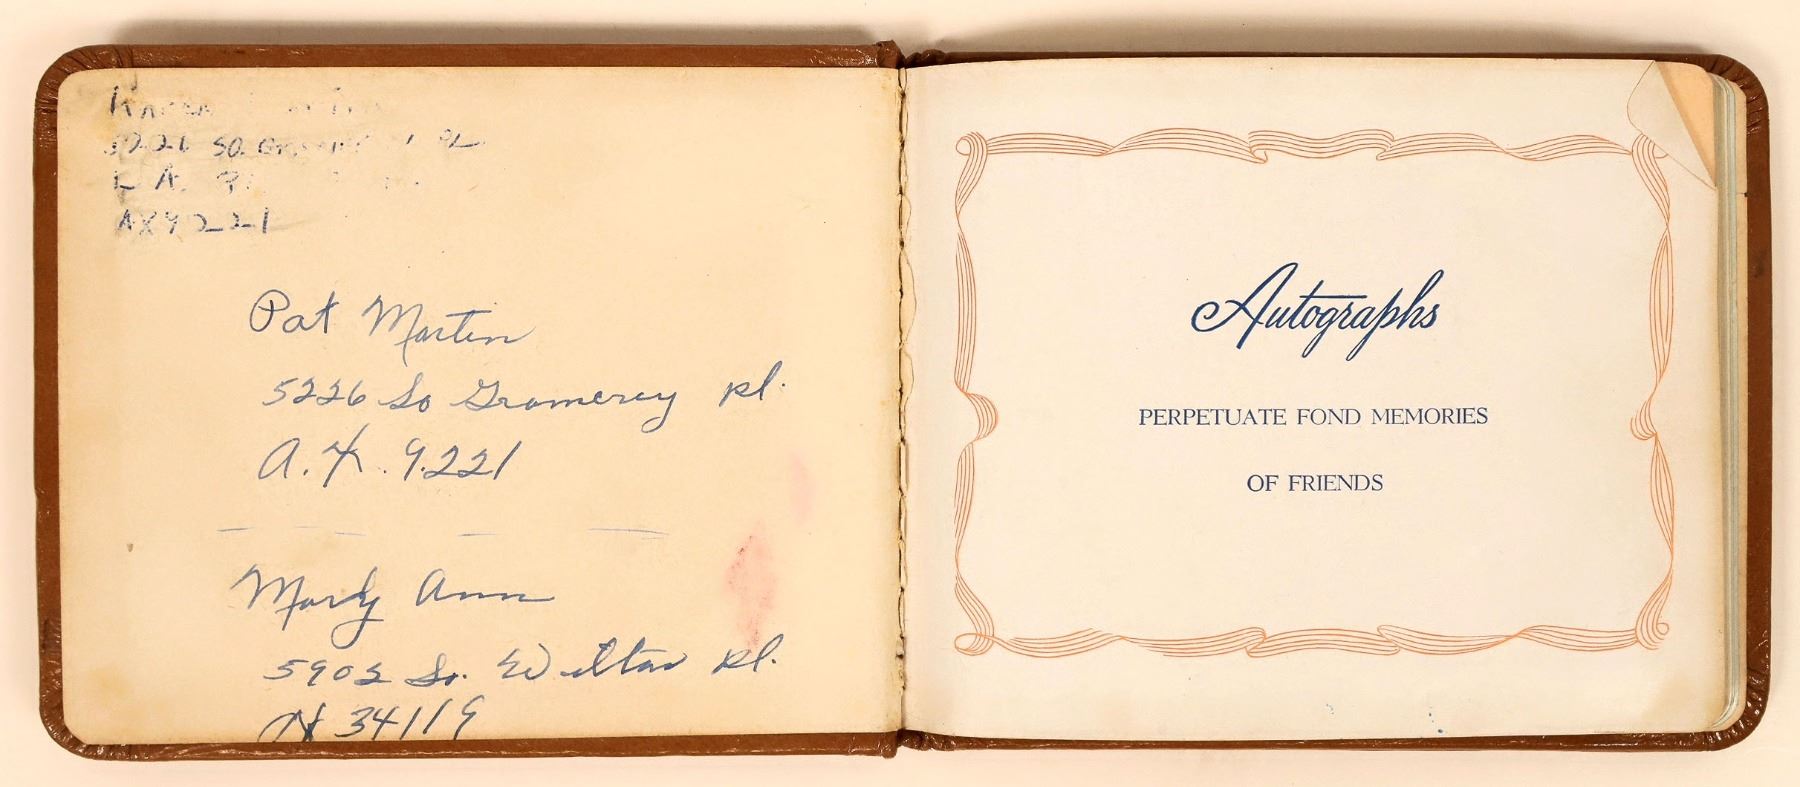 Karen
5226 SO.
L A.
AX 9221
Pat Martin
5226 So Gramercy Pl.
A.X. 9.221
Mardy Ann
5902 So. Wilton Pl.
AX 34119
Autographs
PERPETUATE FOND MEMORIES
OF FRIENDS